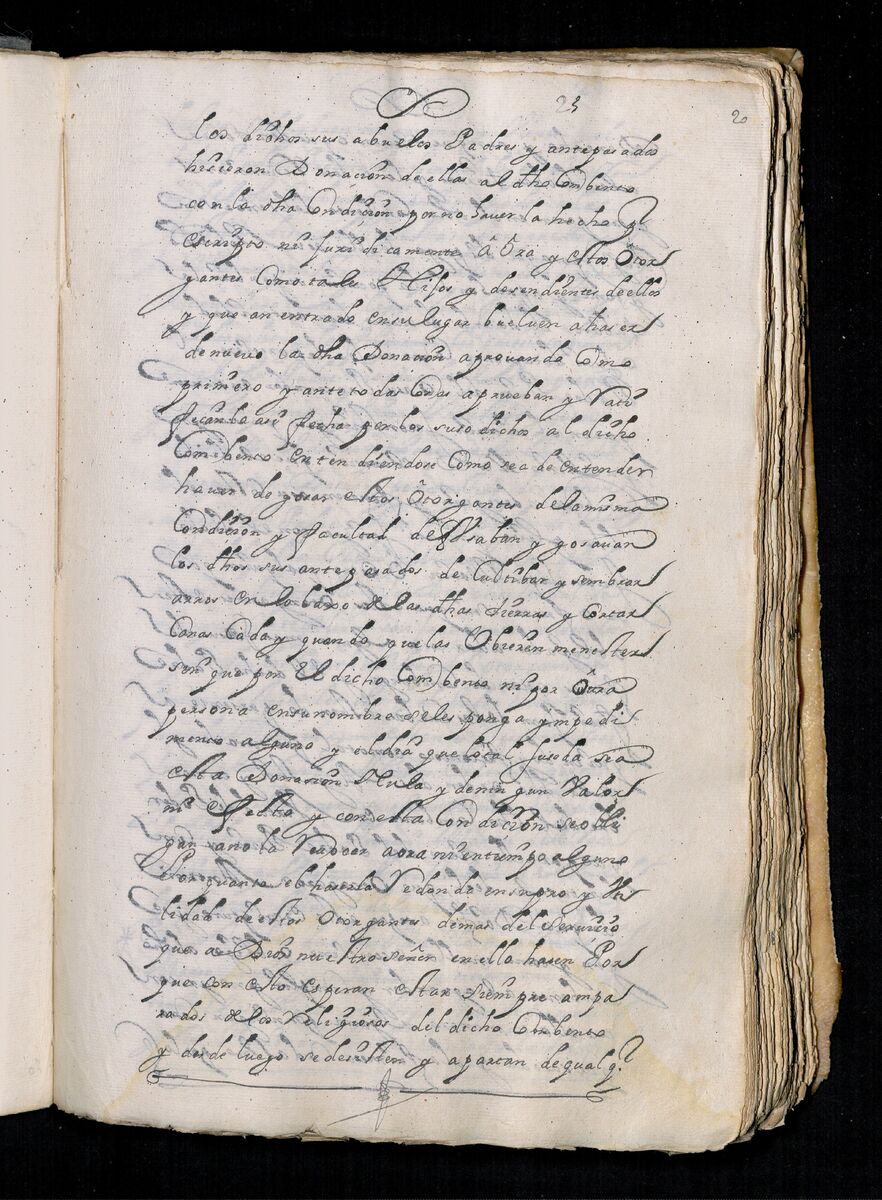 23
20
los dichos sus abuelos Padres y antepasados
hisieron Donación de ellas al dho Combento
con la dha Condición y por no haver la hecho p.r
escripto ni juridicamente âôra y estos Otor
gantes como tales Hijos y desendientes de ellos
y que an entrado en su lugar buelven a haser
de nuevo la dha Donación aprovando como
primero y ante todas Cosas aprueban y rati
fican la asi fecha por los suso dichos al dicho
Combento entendiendose como sea de entender
haver de gosar estos Otorgantes de la misma
Condición y facultad de q Usaban y gosavan
los dhos sus antepasados de Cultibar y sembrar
arros en lo baxo de las dhas tierras y Cortar
Canas Cada y quando que las Ubieren menester
sin que por El dicho Combento ni por Otra
persona en su nombre se les ponga ympedi
mento alguno y el dia que lo tal suseda sea
esta Donasion Nula y de nin gun Valor
ni efecto y con esta Condición se obli
gan a no la Revocar aora ni en tiempo alguno
Por quanto el haserla Redonda en su pro y Uti
lidad de estos Otorgantes demas del Servicio
que a Dios nuestro señor en ello hasen Por
que con esto Esperan estar siempre ampa
rados de los Religiosos del dicho Combento
y desde luego se desisten y apartan de qualq.r